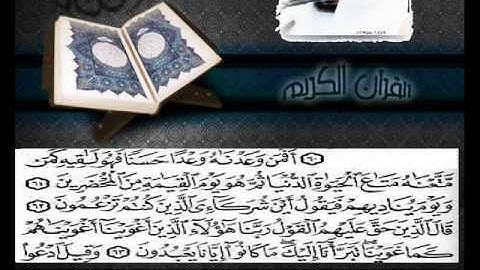 القرآن الكريم
٦٠ أَفَمَن وَعَدْنَٰهُ وَعْدًا حَسَنًا فَهُوَ لَٰقِيهِ كَمَن
مَّتَّعْنَٰهُ مَتَٰعَ ٱلْحَيَوٰةِ ٱلدُّنْيَا ثُمَّ هُوَ يَوْمَ ٱلْقِيَٰمَةِ مِنَ ٱلْمُحْضَرِينَ ٦١
وَيَوْمَ يُنَادِيهِمْ فَيَقُولُ أَيْنَ شُرَكَآءِىَ ٱلَّذِينَ كُنتُمْ تَزْعُمُونَ ٦٢
قَالَ ٱلَّذِينَ حَقَّ عَلَيْهِمُ ٱلْقَوْلُ رَبَّنَا هَٰٓؤُلَآءِ ٱلَّذِينَ أَغْوَيْنَآ أَغْوَيْنَٰهُمْ
كَمَا غَوَيْنَا تَبَرَّأْنَآ إِلَيْكَ مَا كَانُوٓا۟ إِيَّانَا يَعْبُدُونَ ٦٣ وَقِيلَ ٱدْعُوا۟